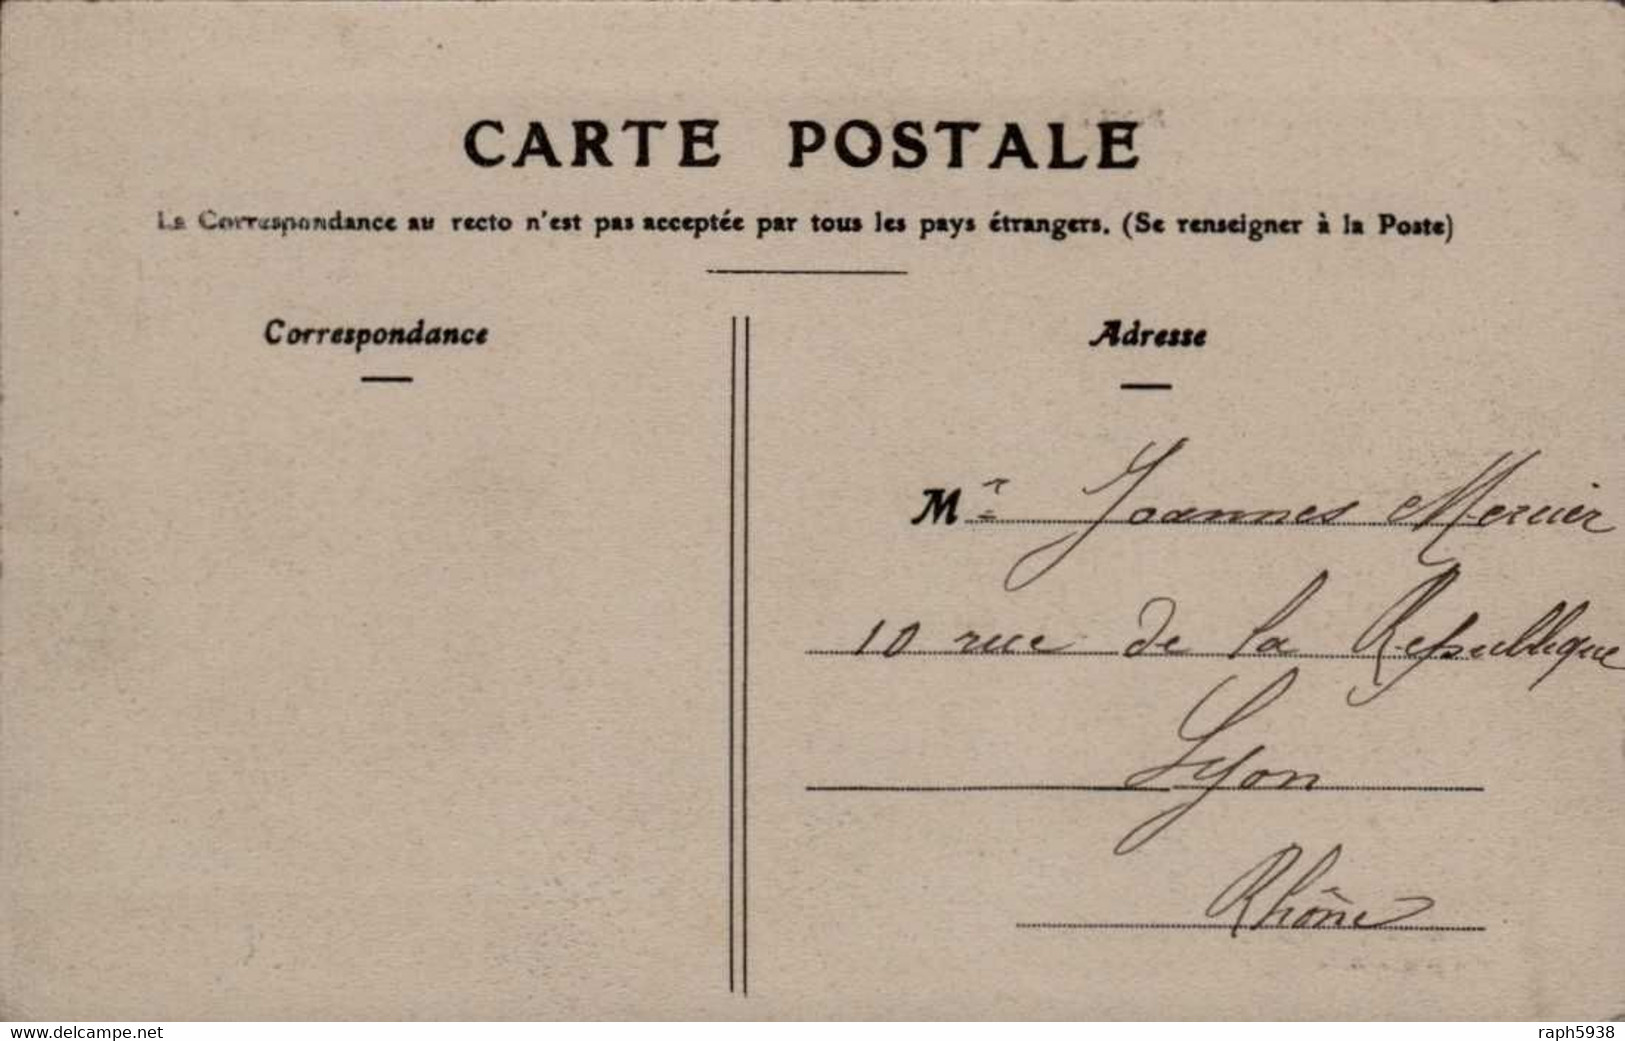 CARTE POSTALE
La Correspondance au recto n'est pas acceptée par tous les pays étrangers. (Se renseigner à la Poste)
Correspondance
Adresse
Mr Joannes Mercier
10 rue de la République
Lyon
Rhône
www.delcampe.net
raph5938